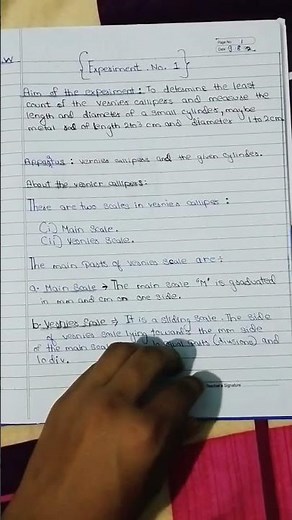 {Experiment No. 1}
Aim of the experiment: To determine the least
count of the vernier callipers and measure the
length and diameter of a small cylinder, maybe
metal rod of length 2 to 3 cm and diameter 1 to 2 cm.
Appratus: vernier callipers and the given cylinder.
About the vernier callipers:
There are two scales in vernier calliper:
(i) Main Scale.
(ii) Vernier Scale.
The main parts of vernier scale are:
a. Main Scale → The main scale "M" is graduated
in mm and cm on one side.
b. Vernier Scale ⇒ It is a sliding scale. The side
of vernier scale lying towards the mm side
of the main scale equal parts (divisions) and
10 div.
Teacher's Signature